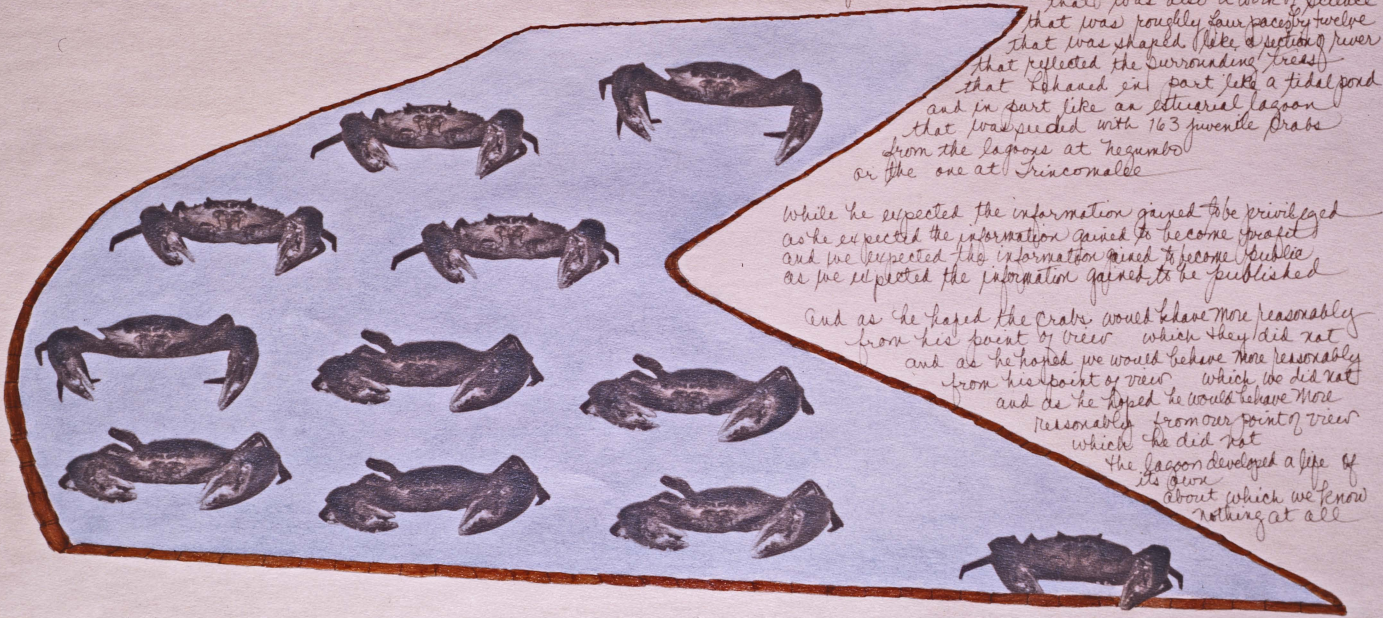 that was also a work of science
that was roughly four paces by twelve
that was shaped like a section of river
that reflected the surrounding trees
that behaved in part like a tidal pond
and in part like an estuarial lagoon
that was seeded with 163 juvenile crabs
from the lagoons at Negumbo
or the one at Trincomalee
While he expected the information gained to be privileged
as he expected the information gained to become profit
and we expected the information gained to become public
as we expected the information gained to be published
And as he hoped the crabs would behave more reasonably
from his point of view which they did not
and as he hoped we would behave more reasonably
from his point of view which we did not
and as he hoped he would behave more
reasonably from our point of view
which he did not
the lagoon developed a life of
its own
about which we know
nothing at all